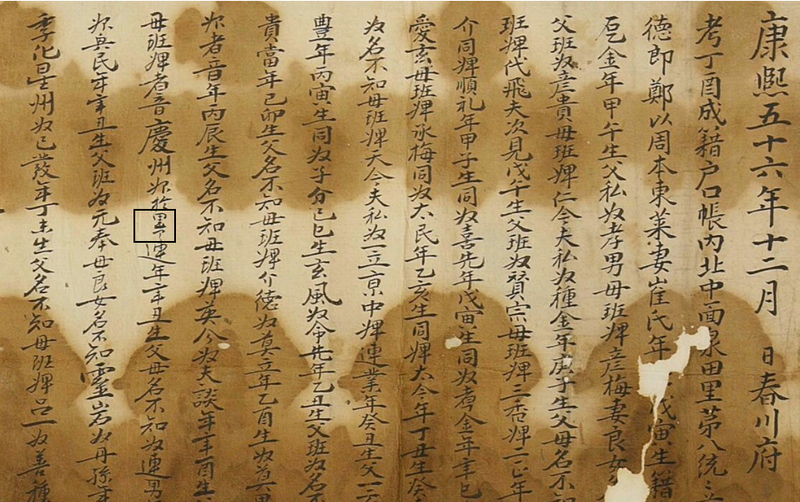 康熙五十六年十二月 日春川府
考丁酉成籍戶口帳內北中面泉田里苐八統
德郎鄭以周本東萊妻崔氏年 戊寅生籍
金年甲午生父私奴孝男母班婢彦梅妻良女
父班奴彦貴母班婢仁今夫私奴種金年庚子生父母名不知
班婢代飛夫次見戊午生父班奴貿宗母班婢三香婢二亡年
介同婢順礼年甲子生同奴喜先年戊寅生同奴奉金年辛巳
愛玄母班婢承梅同奴太民年乙亥生同婢大今年丁丑生癸
奴名不知母班婢大今夫私奴一立京中婢連業年癸丑生父
豊年丙寅生同奴子分己巳生玄風奴命先年乙丑生父班奴名
貴當年己卯生父名不知母班婢介德奴莫立年乙酉生奴
奴者音年丙辰生父名不知母班婢英今奴夫談年辛酉生
母班婢者音慶州奴 連年辛丑生父母名不知奴連男
年辛丑生父班奴元奉母良女名不知靈岩奴毋孫
季化星州奴已發年丁未生父名不知母班婢呂一奴善種